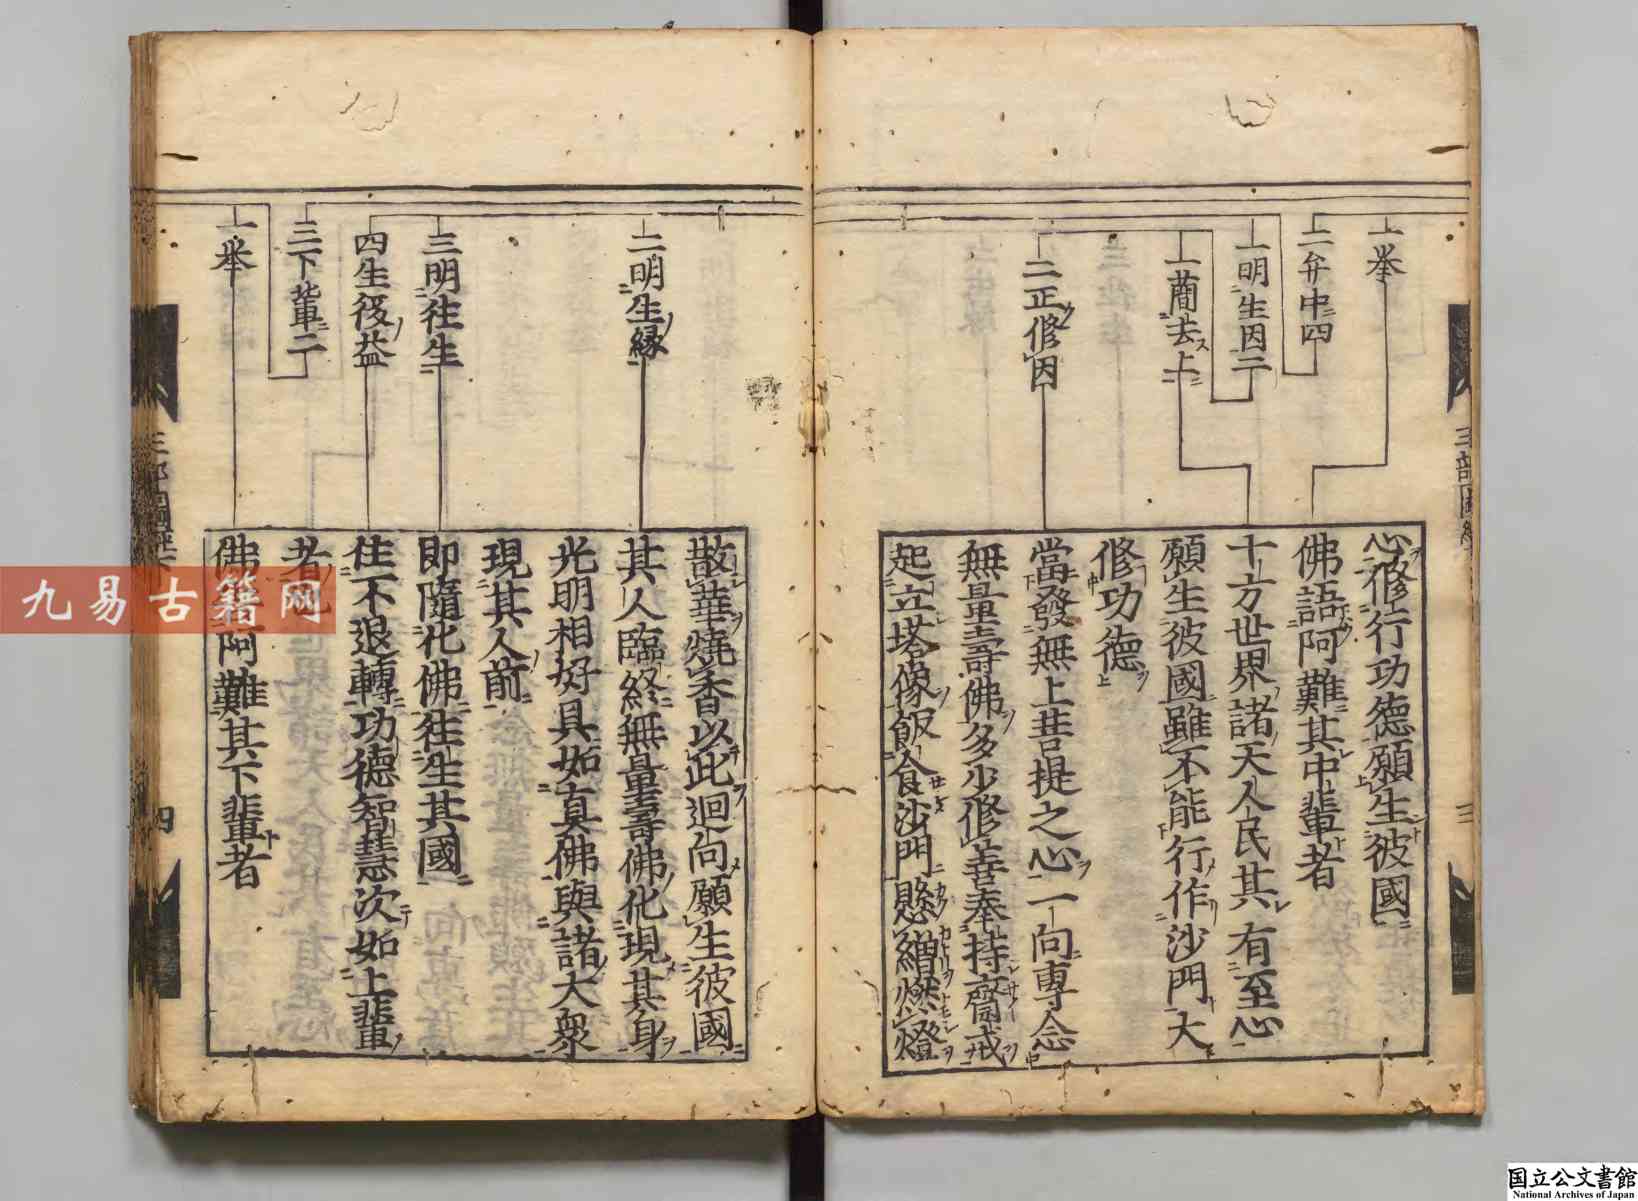 一举
二弁中四
一明生因二
一蕳去上
二正修因
心修行功德願生彼國
佛語阿難其中輩者
十方世界諸天人民其有至心
願生彼國雖不能行作沙門大
修功德
當發無上菩提之心一向專念
無量壽佛多少修善奉持齋戒
起立塔像飯食沙門懸繒燃燈
三
二明生縁
三明往生
四生後益
三下輩二
一举
散華燒香以此迴向願生彼國
其人臨終無量壽佛化現其身
光明相好具如真佛與諸大衆
現其人前
即隨化佛往生其國
住不退轉功德智慧次如上輩
者也
佛語阿難其下輩者
四
九易古籍网
国立公文書館
National Archives of Japan